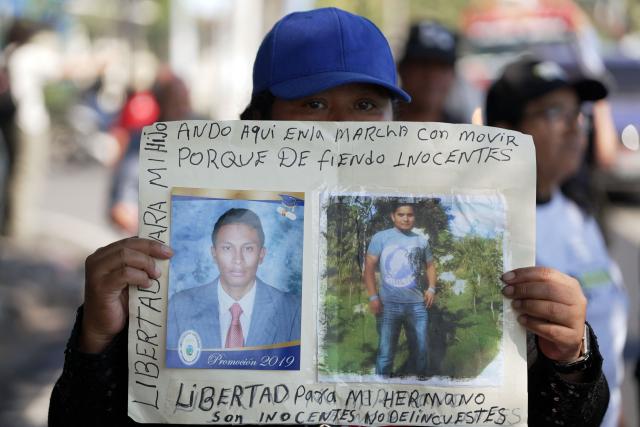 ANDO AQUI EN LA MARCHA CON MOVIR
PORQUE DE fiENDO INOCENTES
LIBERTAD PARA MI HIJO
Promoción 2019
LIBERTAD PARA MI HERMANO
SON INOCENTES NO DELINCUESTES